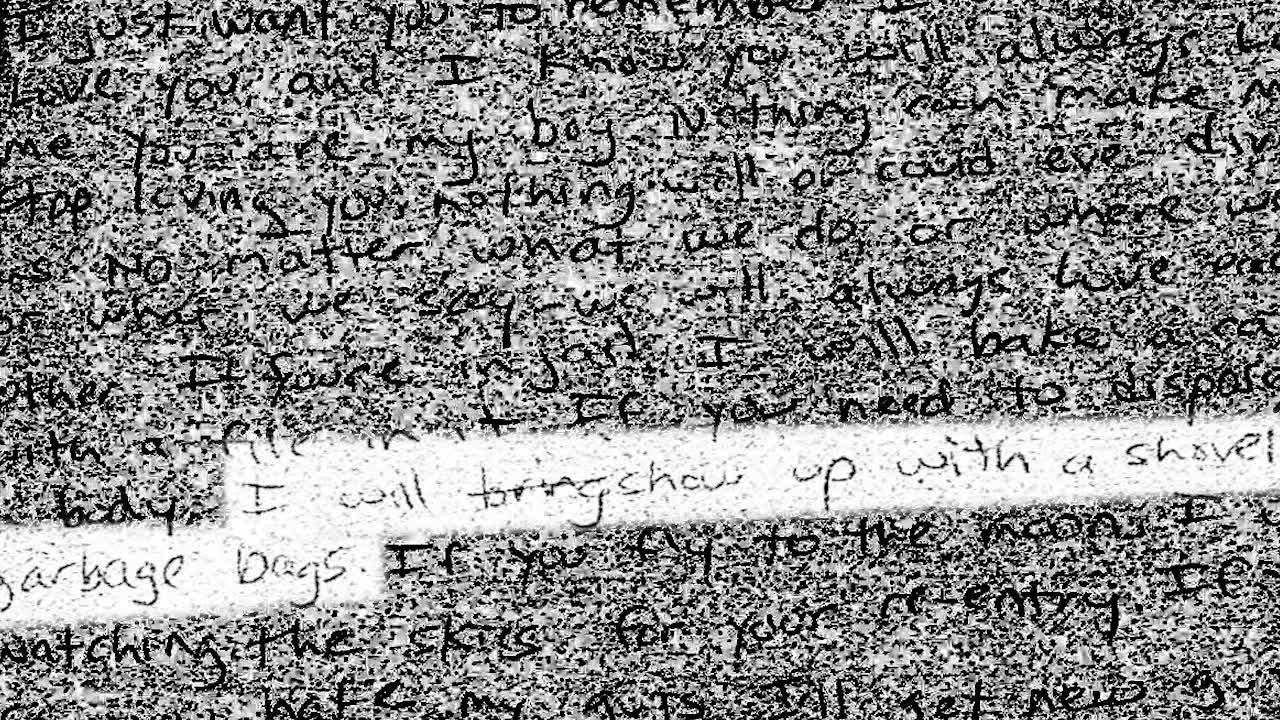 I just want you to remember I
Love you, and I know you will always
me You are my boy Nothing can make
stop loving you, Nothing will or could eve
NO matter what we do, or where
or what we say - we will always love
other If you're in jail I will bake a
with a file in it If you need to
a body. I will bring show up with a shovel
garbage bags. If you fly to the moon, I
watching the skies for your re-entry. If
hate my guts I'll get new